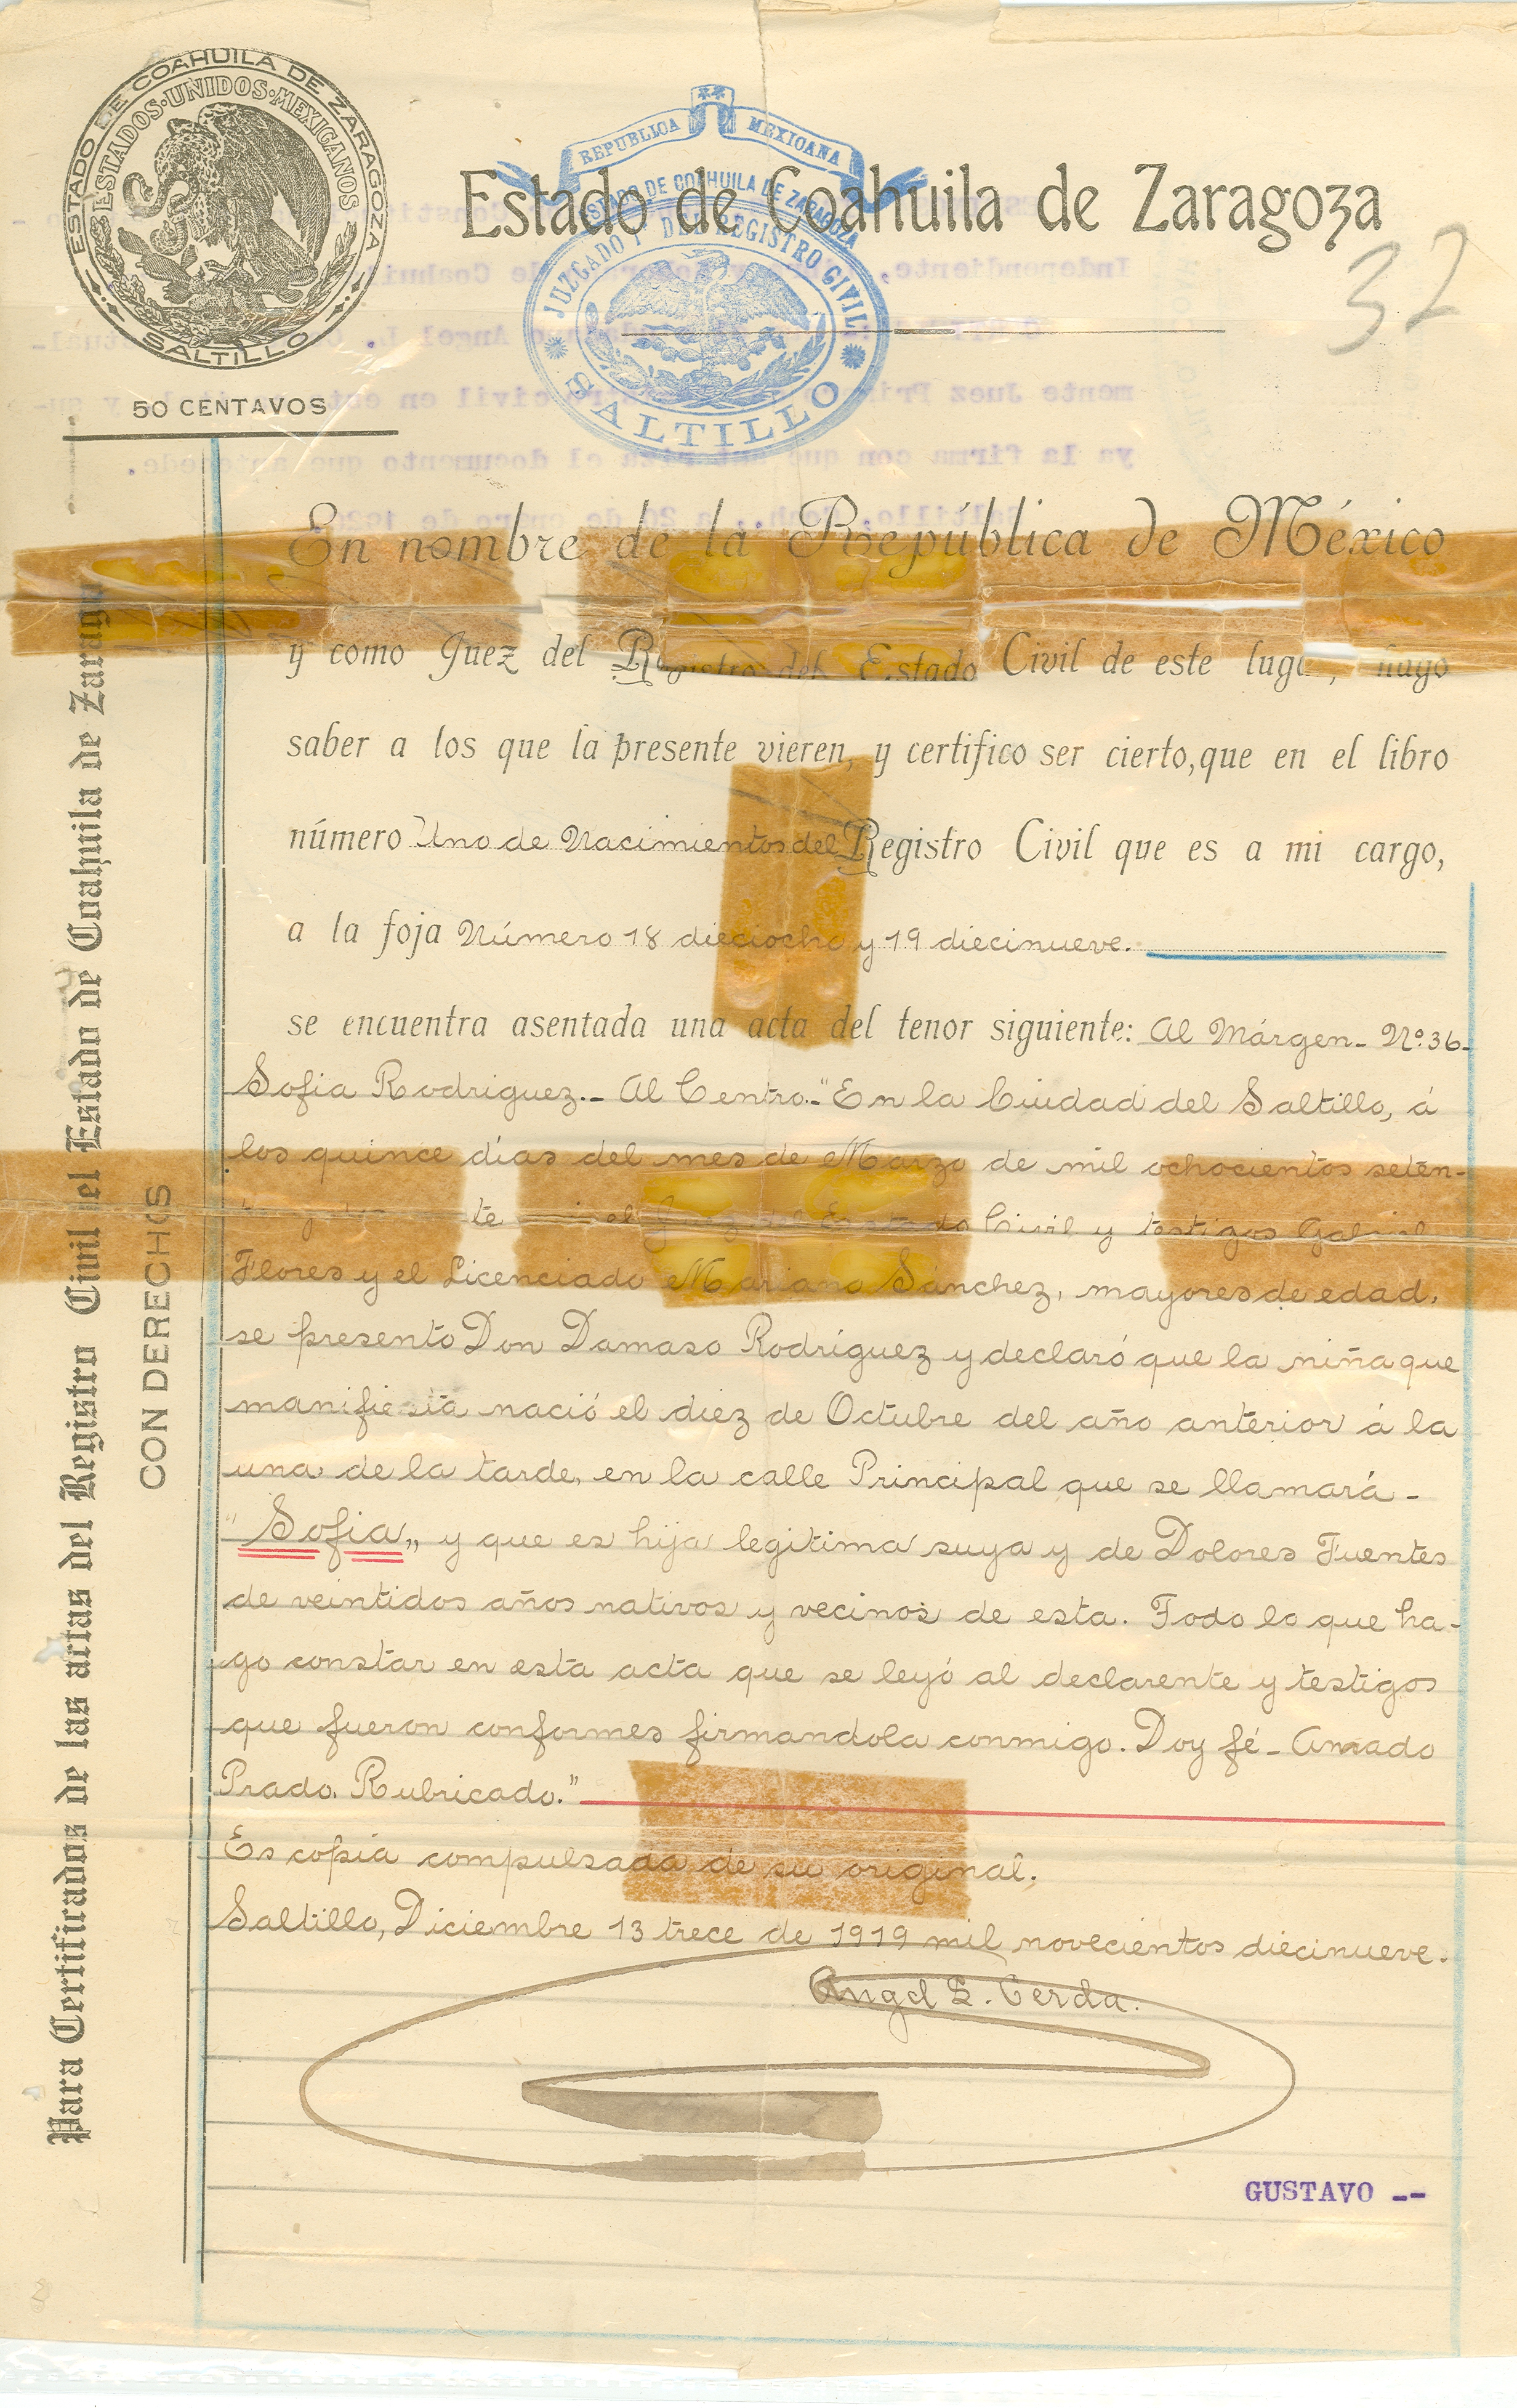 ESTADO DE COAHUILA DE ZARAGOZA
ESTADOS·UNIDOS·MEXICANOS
SALTILLO
50 CENTAVOS
REPUBLICA MEXICANA
ESTADO DE COAHUILA DE ZARAGOZA
JUZGADO 1º DEL REGISTRO CIVIL
SALTILLO
Estado de Coahuila de Zaragoza
32
En nombre de la República de México
y como Juez del Registro del Estado Civil de este lugar, hago
saber a los que la presente vieren, y certifico ser cierto, que en el libro
número Uno de Nacimientos del Registro Civil que es a mi cargo,
a la foja Número 18 dieciocho y 19 diecinueve.
se encuentra asentada una acta del tenor siguiente: Al Márgen- Nº. 36-
Sofia Rodriguez.- Al Centro.-"En la Ciudad del Saltillo, á
los quince días del mes de Marzo de mil ochocientos setén-
te el Juez del Estado Civil y testigos Gabriel
Flores y el Licenciado Mariano Sánchez, mayores de edad,
se presento Don Damaso Rodríguez y declaró que la niña que
manifiesta nació el diez de Octubre del año anterior á la
una de la tarde, en la calle Principal que se llamará -
"Sofia„ y que es hija legitima suya y de Dolores Fuentes
de veintidos años nativos y vecinos de esta. Todo lo que ha-
go constar en esta acta que se leyó al declarente y testigos
que fueron conformes firmandola conmigo. Doy fé - Amado
Prado. Rubricado."
Es copia compulsada de su original.
Saltillo, Diciembre 13 trece de 1919 mil novecientos diecinueve.
Angel L. Cerda.
GUSTAVO --
Para Certificados de las actas del Registro Civil del Estado de Coahuila de Zaragoza
CON DERECHOS